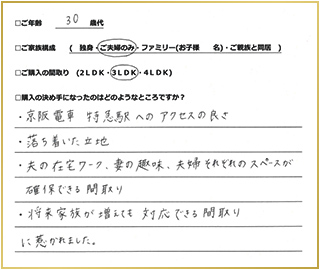 □ご年齢　30　歳代
□ご家族構成　（　独身・ご夫婦のみ・ファミリー(お子様　　名)・ご親族と同居　）
□ご購入の間取り　（2LDK・3LDK・4LDK）
□購入の決め手になったのはどのようなところですか？
・京阪電車　特急駅へのアクセスの良さ
・落ち着いた立地
・夫の在宅ワーク、妻の趣味、夫婦それぞれのスペースが
確保できる間取り
・将来家族が増えても対応できる間取り
に惹かれました。